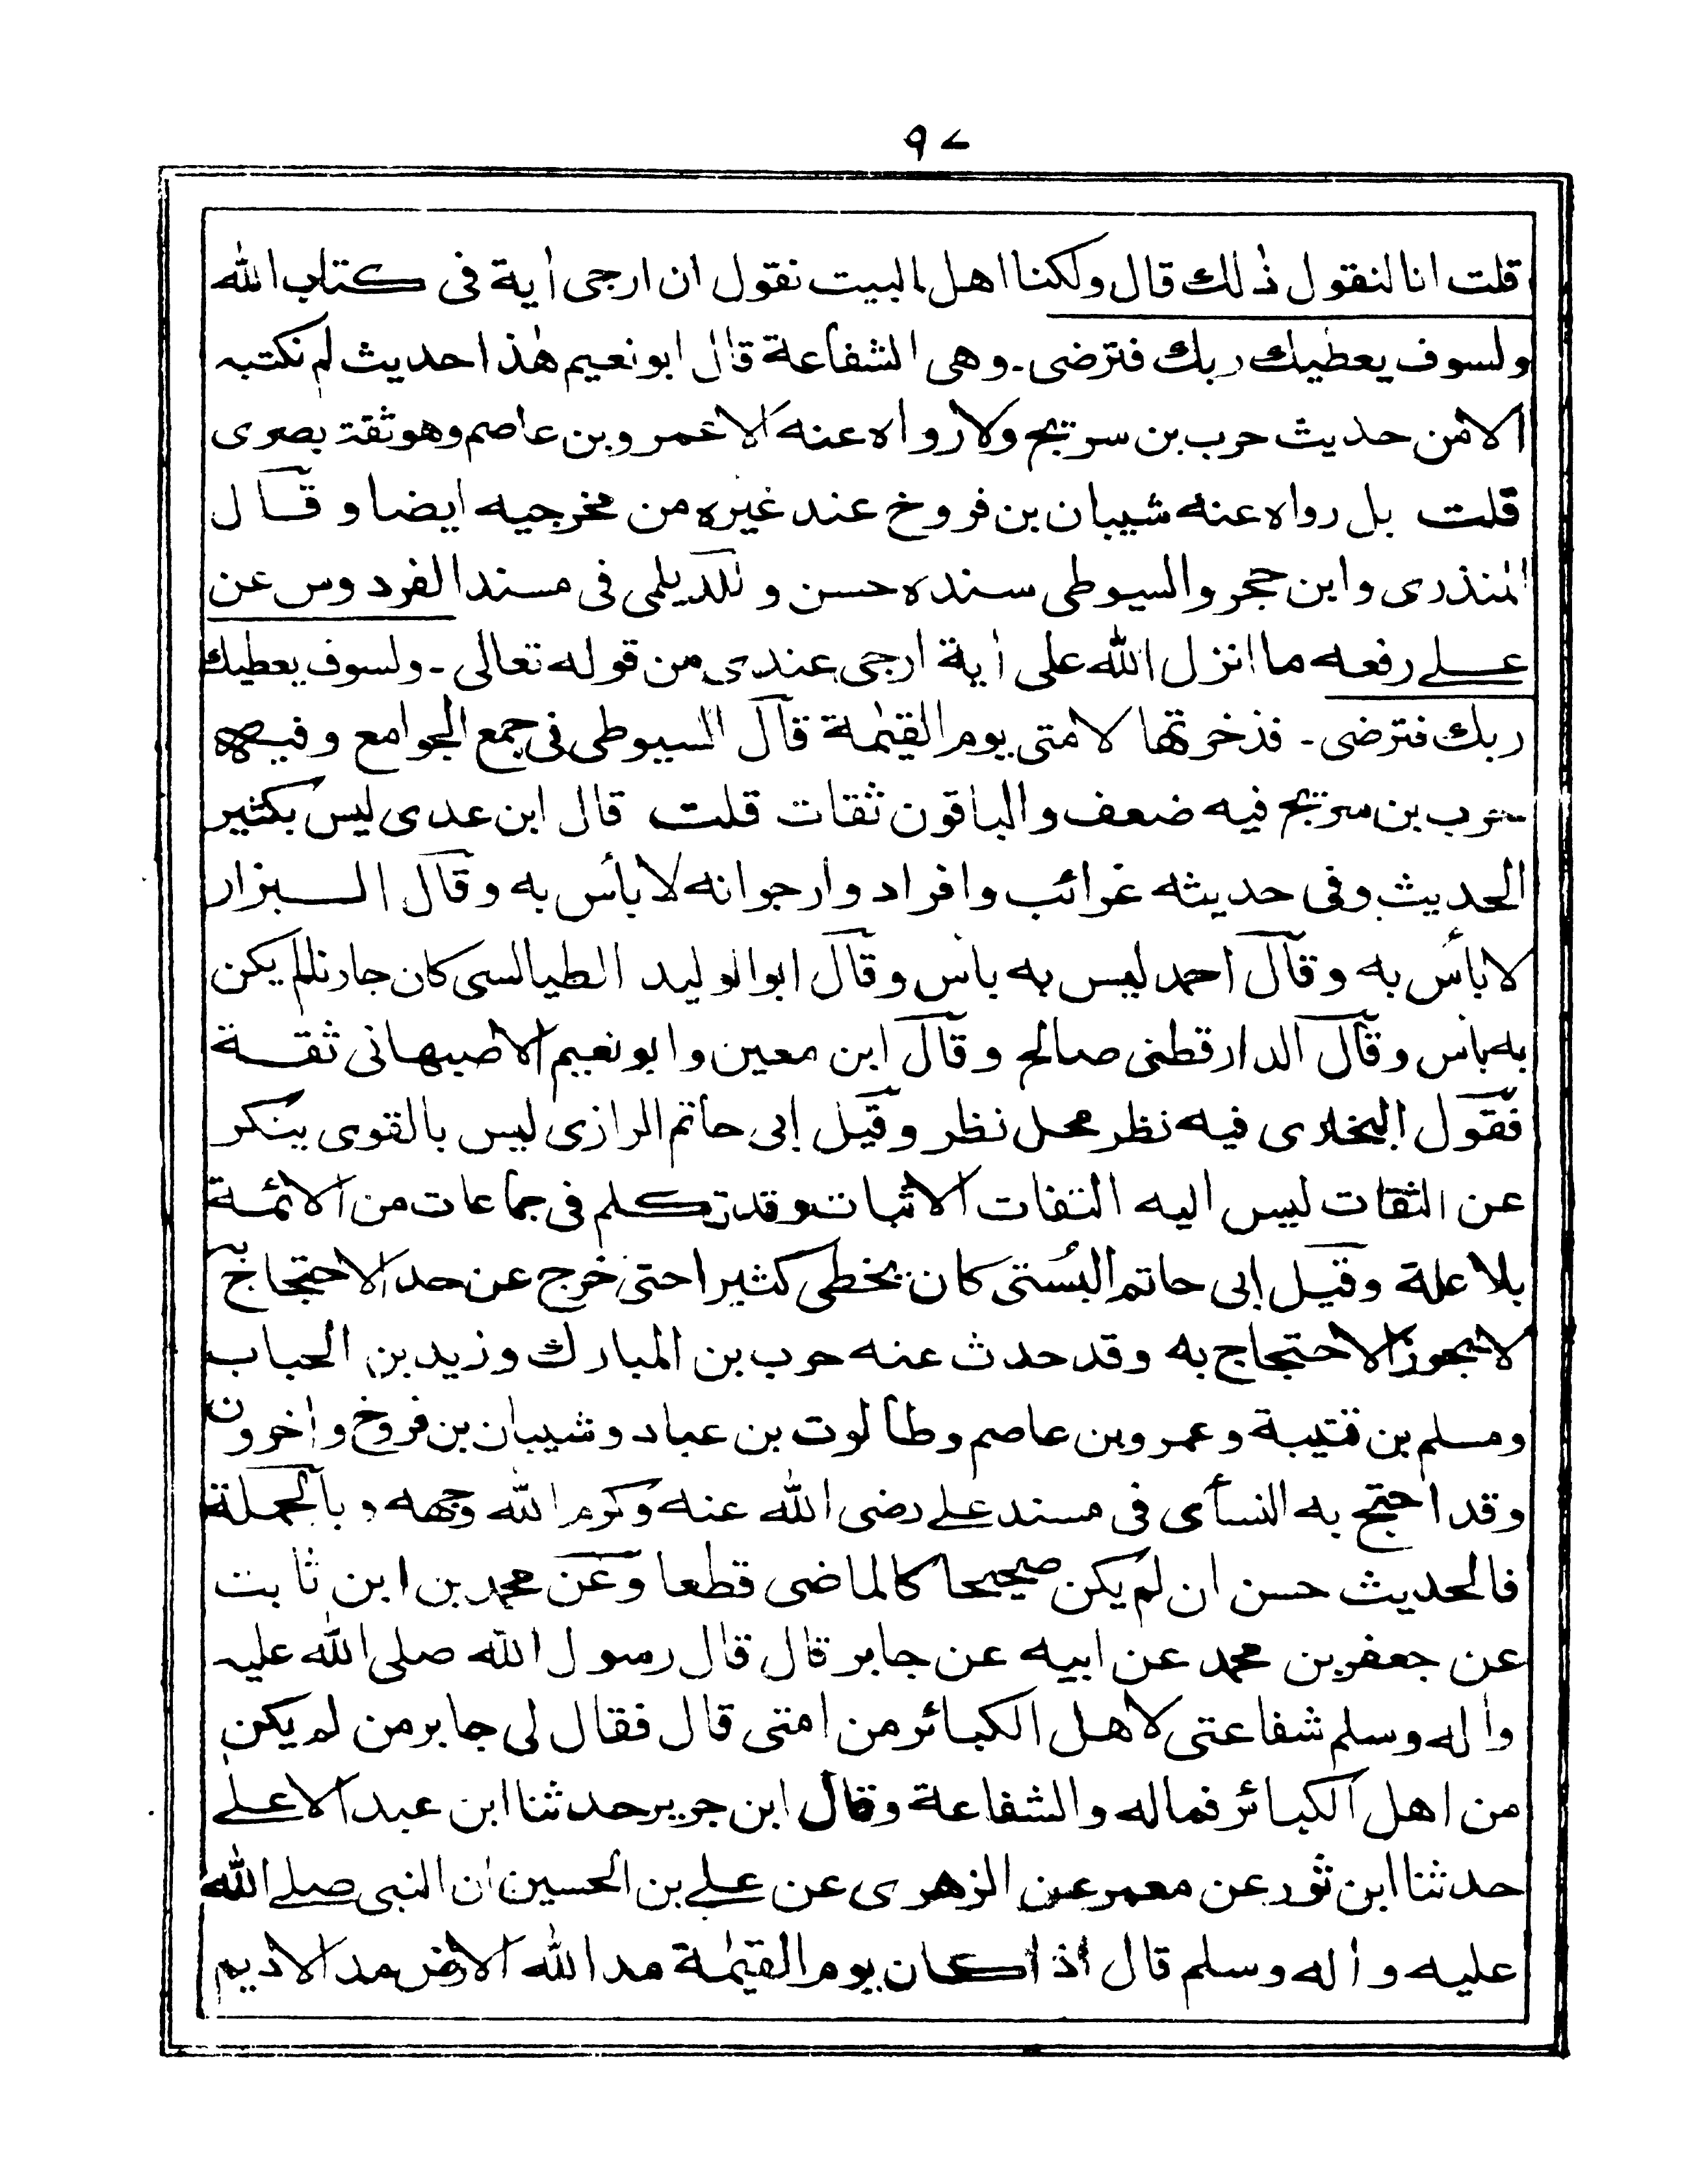 ٩٧
قلت انا لنقول ذٰلك قال ولكنا اهل البيت نقول ان ارجى اٰية فى كتاب الله
ولسوف يعطيك ربك فترضى۔ وهى الشفاعة قال ابو نعيم هٰذا حديث لم نكتبه
الا من حديث حرب بن سريج ولا رواه عنه الا عمرو بن عاصم وهو ثقة بصرى
قلت بل رواه عنه شيبان بن فروخ عند غيره من مخرجيه ايضا وقال
المنذرى وابن حجر والسيوطى سنده حسن وللديلمى فى مسند الفردوس عن
على رفعه ما انزل الله على اٰية ارجى عندى من قوله تعالى ۔ ولسوف يعطيك
ربك فترضى ۔ فذخرتها لامتى يوم القيٰمة قال السيوطى فى جمع الجوامع وفيه
حرب بن سريج فيه ضعف والباقون ثقات قلت قال ابن عدى ليس بكثير
الحديث وفى حديثه غرائب وافراد وارجو انه لا بأس به وقال البزار
لا بأس به وقال احمد ليس به بأس وقال ابو الوليد الطيالسى كان جارنا لم يكن
به بأس وقال الدارقطنى صالح وقال ابن معين وابو نعيم الاصبهانى ثقة
فقول البخارى فيه نظر محل نظر وقيل ابى حاتم الرازى ليس بالقوى ينكر
عن الثقات ليس اليه التفات الاثبات وقد تكلم فى جماعات من الائمة
بلا علة وقيل ابى حاتم البُستى كان يخطى كثيرا حتى خرج عن حد الاحتجاج به
لا يجوز الاحتجاج به وقد حدث عنه حرب بن المبارك وزيد بن الحباب
ومسلم بن قتيبة وعمرو بن عاصم وطالوت بن عباد وشيبان بن فروخ واٰخرون
وقد احتج به النسأى فى مسند على رضى الله عنه وكرم الله وجهه وبالجملة
فالحديث حسن ان لم يكن صحيحا كالماضى قطعا وعن محمد بن ابن ثابت
عن جعفر بن محمد عن ابيه عن جابر قال قال رسول الله صلى الله عليه
واٰله وسلم شفاعتى لاهل الكبائر من امتى قال فقال لى جابر من لم يكن
من اهل الكبائر فماله والشفاعة وقال ابن جرير حدثنا ابن عبد الاعلى
حدثنا ابن ثور عن معمر عن الزهرى عن على بن الحسين ان النبى صلى الله
عليه واٰله وسلم قال اذا كان يوم القيٰمة مد الله الارض مد الاديم